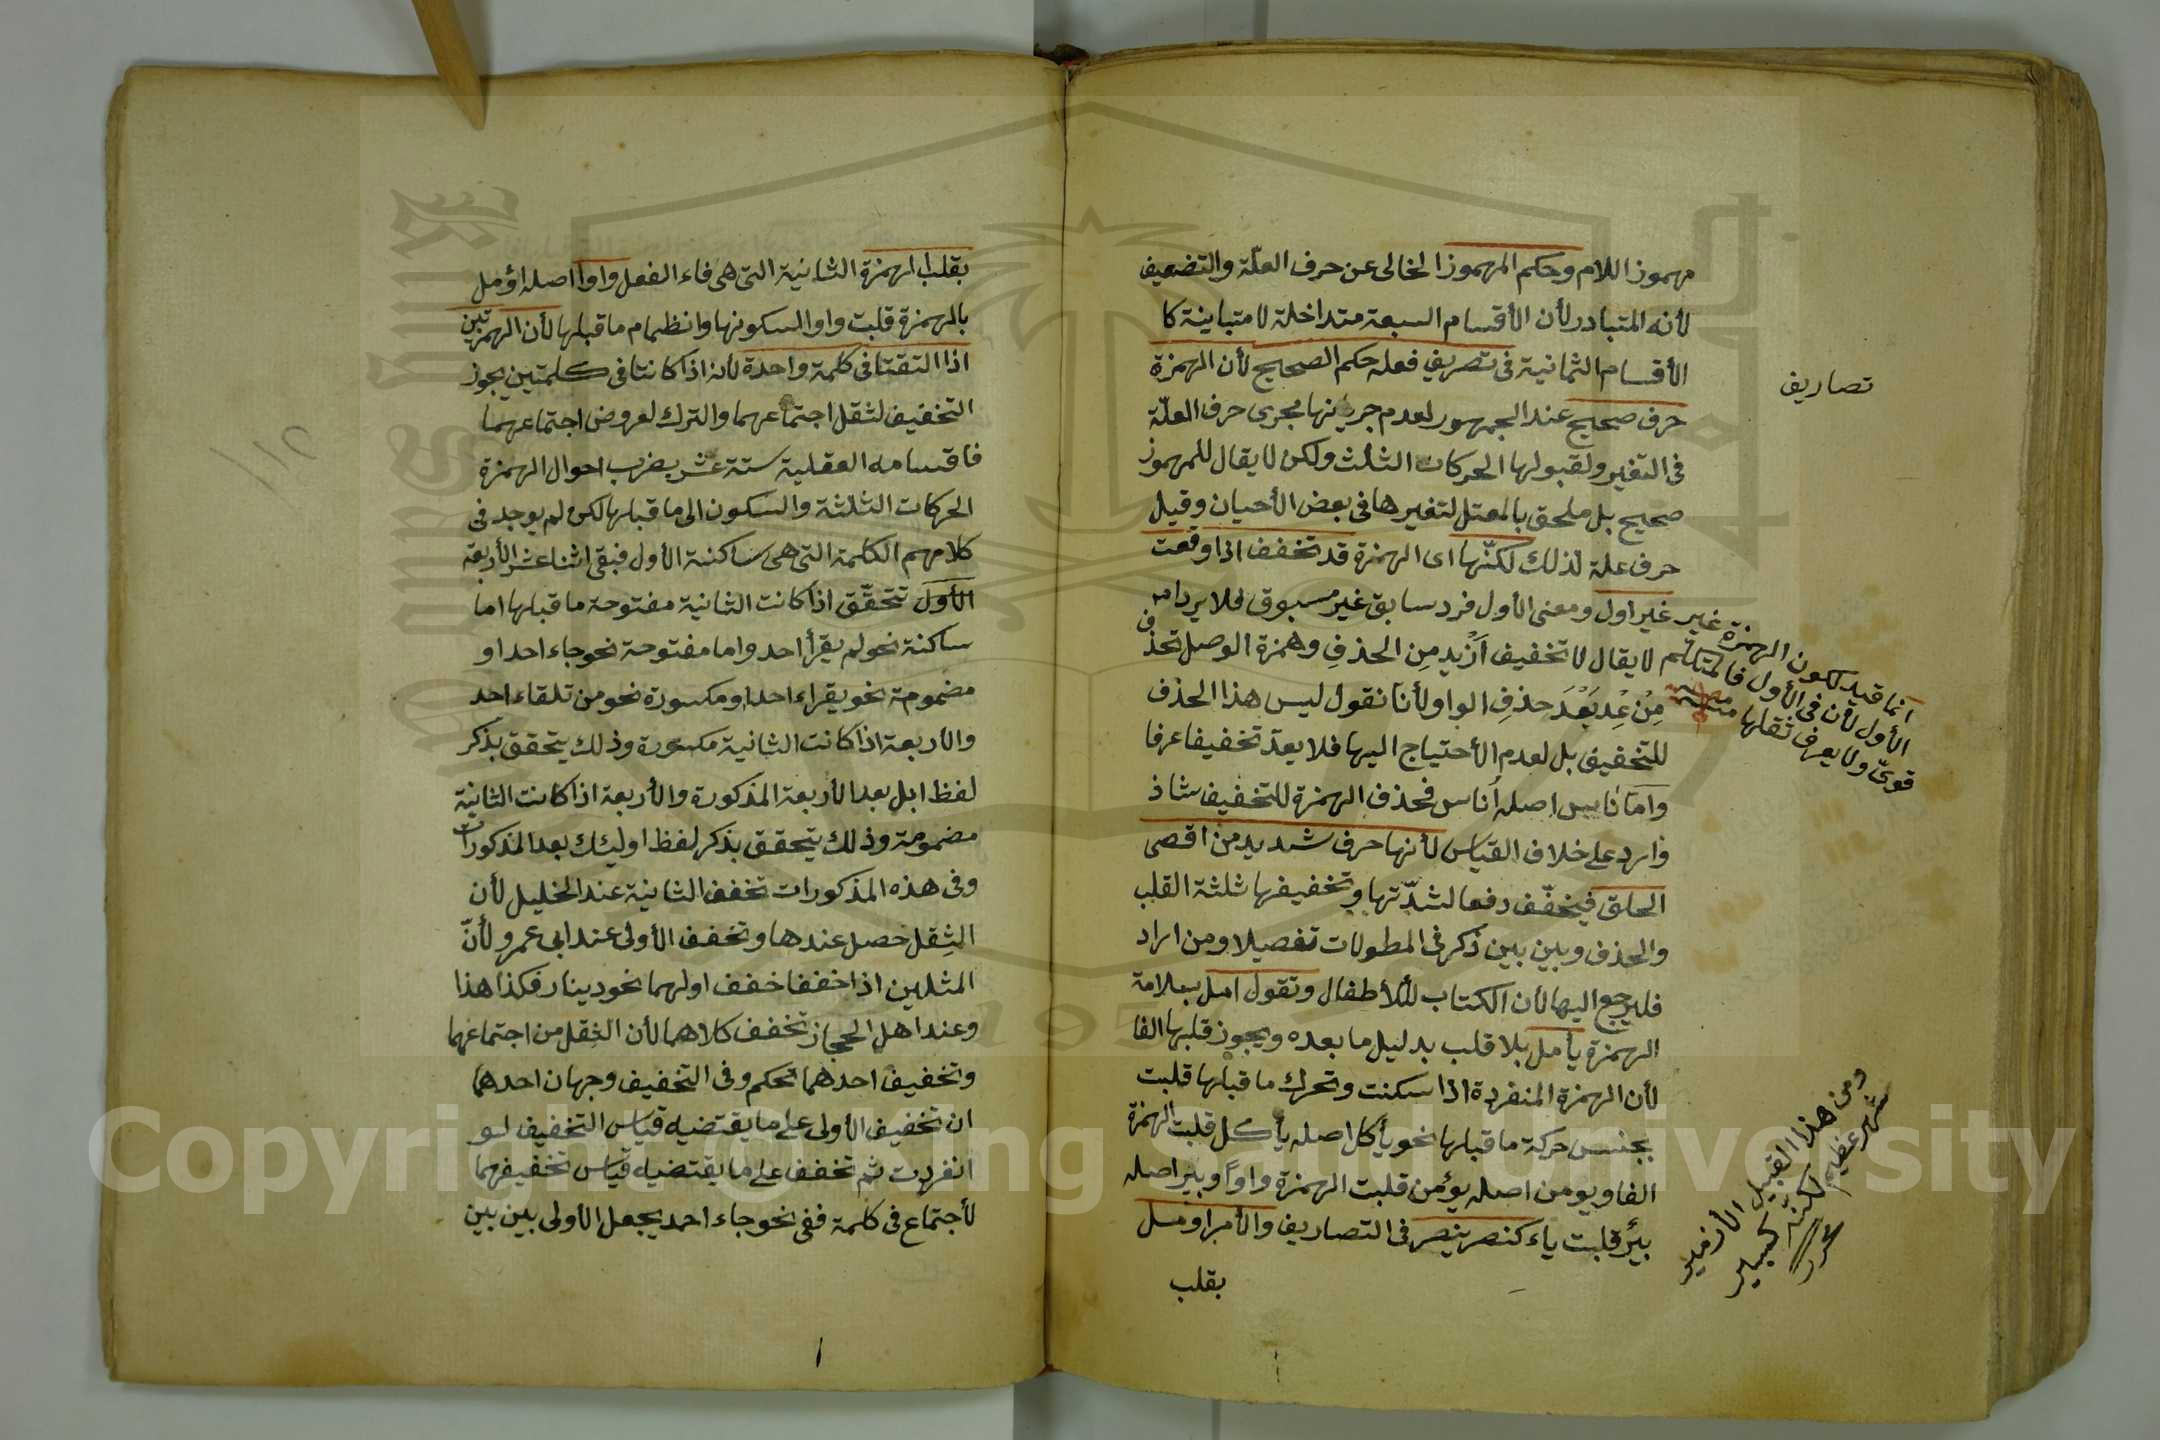 مهموز اللام وحكم المهموز الخالى عن حرف العلّة والتضعيف
لأنه المتبادر لأن الأقسام السبعة متداخلة لا متباينة كا
الأقسام الثمانية فى تصريف فعله حكم الصحيح لأن الهمزة
تصاريف
حرف صحيح عند الجمهور لعدم جريانها مجرى حرف العلّة
فى التغير ولقبولها الحركات الثلث ولكن لا يقال للمهموز
صحيح بل ملحق بالمعتل لتغيرها فى بعض الأحيان وقيل
حرف علة لذلك لكنّها اى الهمزة قد تخفف اذا وقعت
غير اول ومعنى الأول فرد سابق غير مسبوق فلا يرد انه
لا يقال لا تخفيف اَزْيد مِن الحذفِ وهمزة الوصل تحذف
مِنْ عِد بَعْدَ حذفِ الواو لأنا نقول ليس هذا الحذف
للتخفيف بل لعدم الأحتياج اليها فلا يعدّ تخفيفا عرفا
وامّا ناس اصله أناس فحذف الهمزة للتخفيف شاذ
وارد على خلاف القياس لأنها حرف شديد من اقصى
الحلق فيخفّف دفعا لشدّتها وتخفيفها ثلثة القلب
والحذف وبين بين ذكر فى المطولات تفصيلا ومن اراد
فليرجع اليها لأن الكتاب للأطفال وتقول امل بعلامة
الهمزة يأمل بلا قلب بدليل ما بعده ويجوز قلبها الفا
لأن الهمزة المنفردة اذا سكنت وتحرك ما قبلها قلبت
بجنس حركة ما قبلها نحو يأكل اصله يأكل قلبت الهمزة
الفا ويومن اصله يؤمن قلبت الهمزة واوًا وبير اصله
بئر قلبت ياء كنصر ينصر فى التصاريف والأمر اومل
بقلب
انّما قيد لكون الهمزة غير
الأول لأن فى الأول فالمتكلم
قوىّ ولا يعرف ثقلها منه
ومن هذا القبيل الأرفيد
بقلب الهمزة الثانية التى هى فاء الفعل واوا اصله اؤمل
بالهمزة قلبت واوا لسكونها وانظمام ما قبلها لأن الهمزتين
اذا التقتا فى كلمة واحدة لأنه اذا كانتا فى كلمتين يجوز
التخفيف لثقل اجتماعهما والترك لعروض اجتماعهما
فاقسامه العقلية ستة عشر بضرب احوال الهمزة
الحركات الثلثة والسكون الى ما قبلها لكن لم يوجد فى
كلامهم الكلمة التى هى ساكنة الأول فبقى اثنا عشر الأربعة
الأول تتحقّق اذا كانت الثانية مفتوحة ما قبلها اما
ساكنة نحو لم يقرأ احد واما مفتوحة نحو جاء احد او
مضمومة نحو يقراء احد او مكسورة نحو من تلقاء احد
والاربعة اذا كانت الثانية مكسورة وذلك يتحقق بذكر
لفظ ابل بعد الأربعة المذكورة والأربعة اذا كانت الثانية
مضمومة وذلك يتحقق بذكر لفظ اوليئك بعد المذكورات
وفى هذه المذكورات تخفف الثانية عند الخليل لأن
الثِقل حصل عندها وتخفف الأولى عند ابى عمرو لأنّ
المثلين اذا خففا خفف اولهما نحو دينار فكذا هذا
وعند اهل الحجاز تخفف كلاهما لأن الثقل من اجتماعهما
وتخفيف احدهما تحكم وفى التخفيف وجهان احدهما
ان تخفيف الأولى على ما يقتضيه قياس التخفيف لو
انفردت ثم تخفف على ما يقتضيه قياس تخفيفهما
لأجتماع فى كلمة ففى نحو جاء احد يجعل الأولى بين بين
Copyright © King Saud University